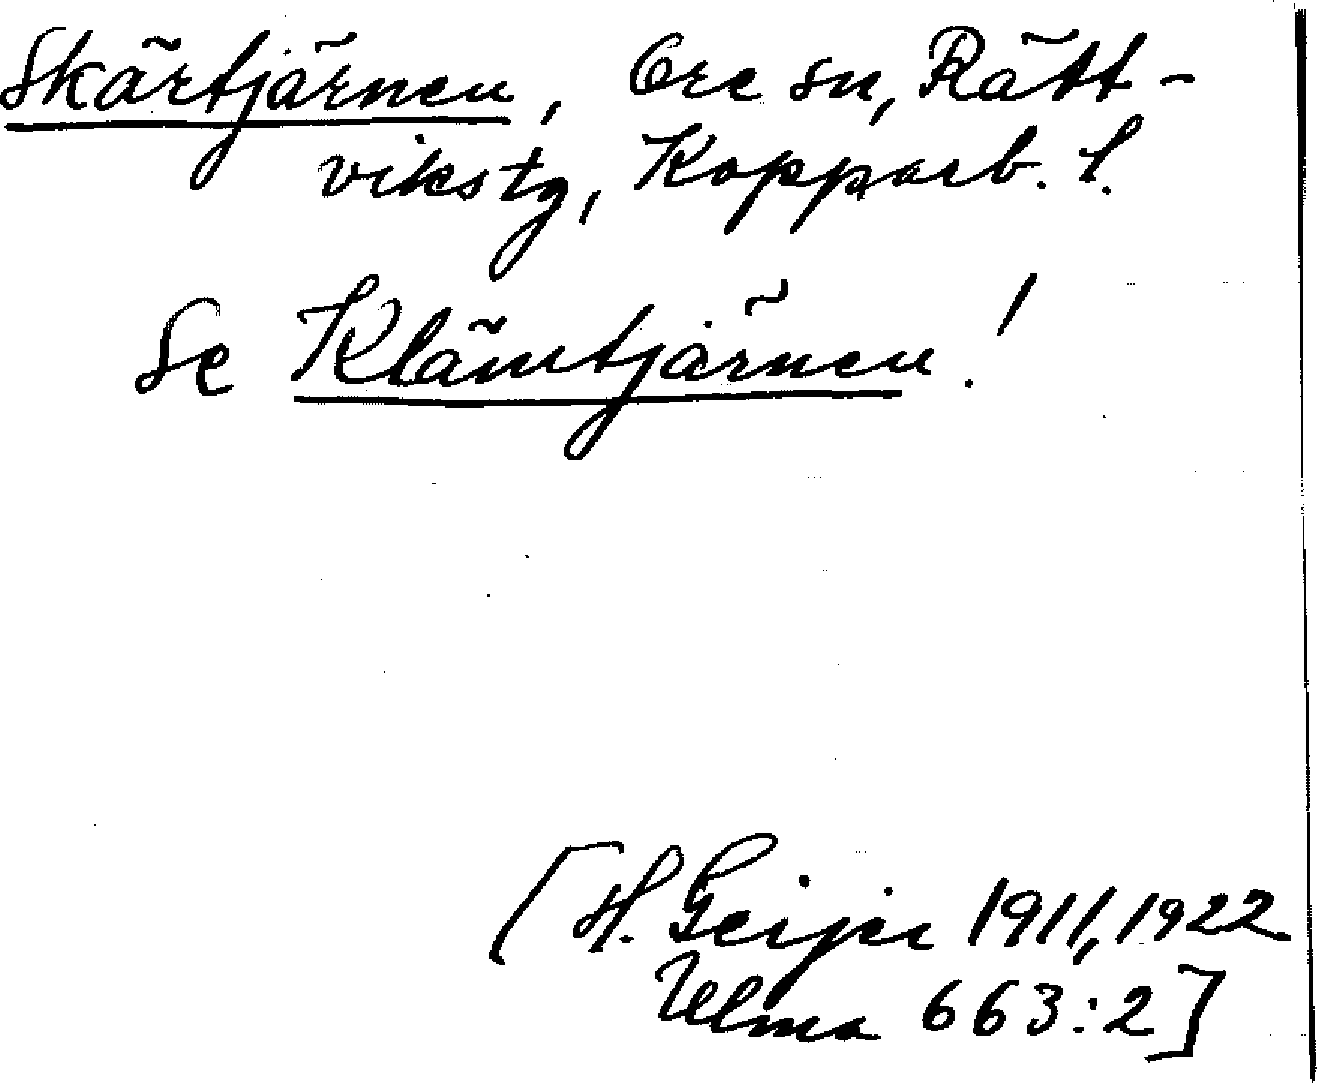 Skärtjärnen, Ore sn, Rätt-
vikstg, Kopparb. l.
Se Klämtjärnen!
[H. Geijer 1911, 1922
Ulma 663:2]